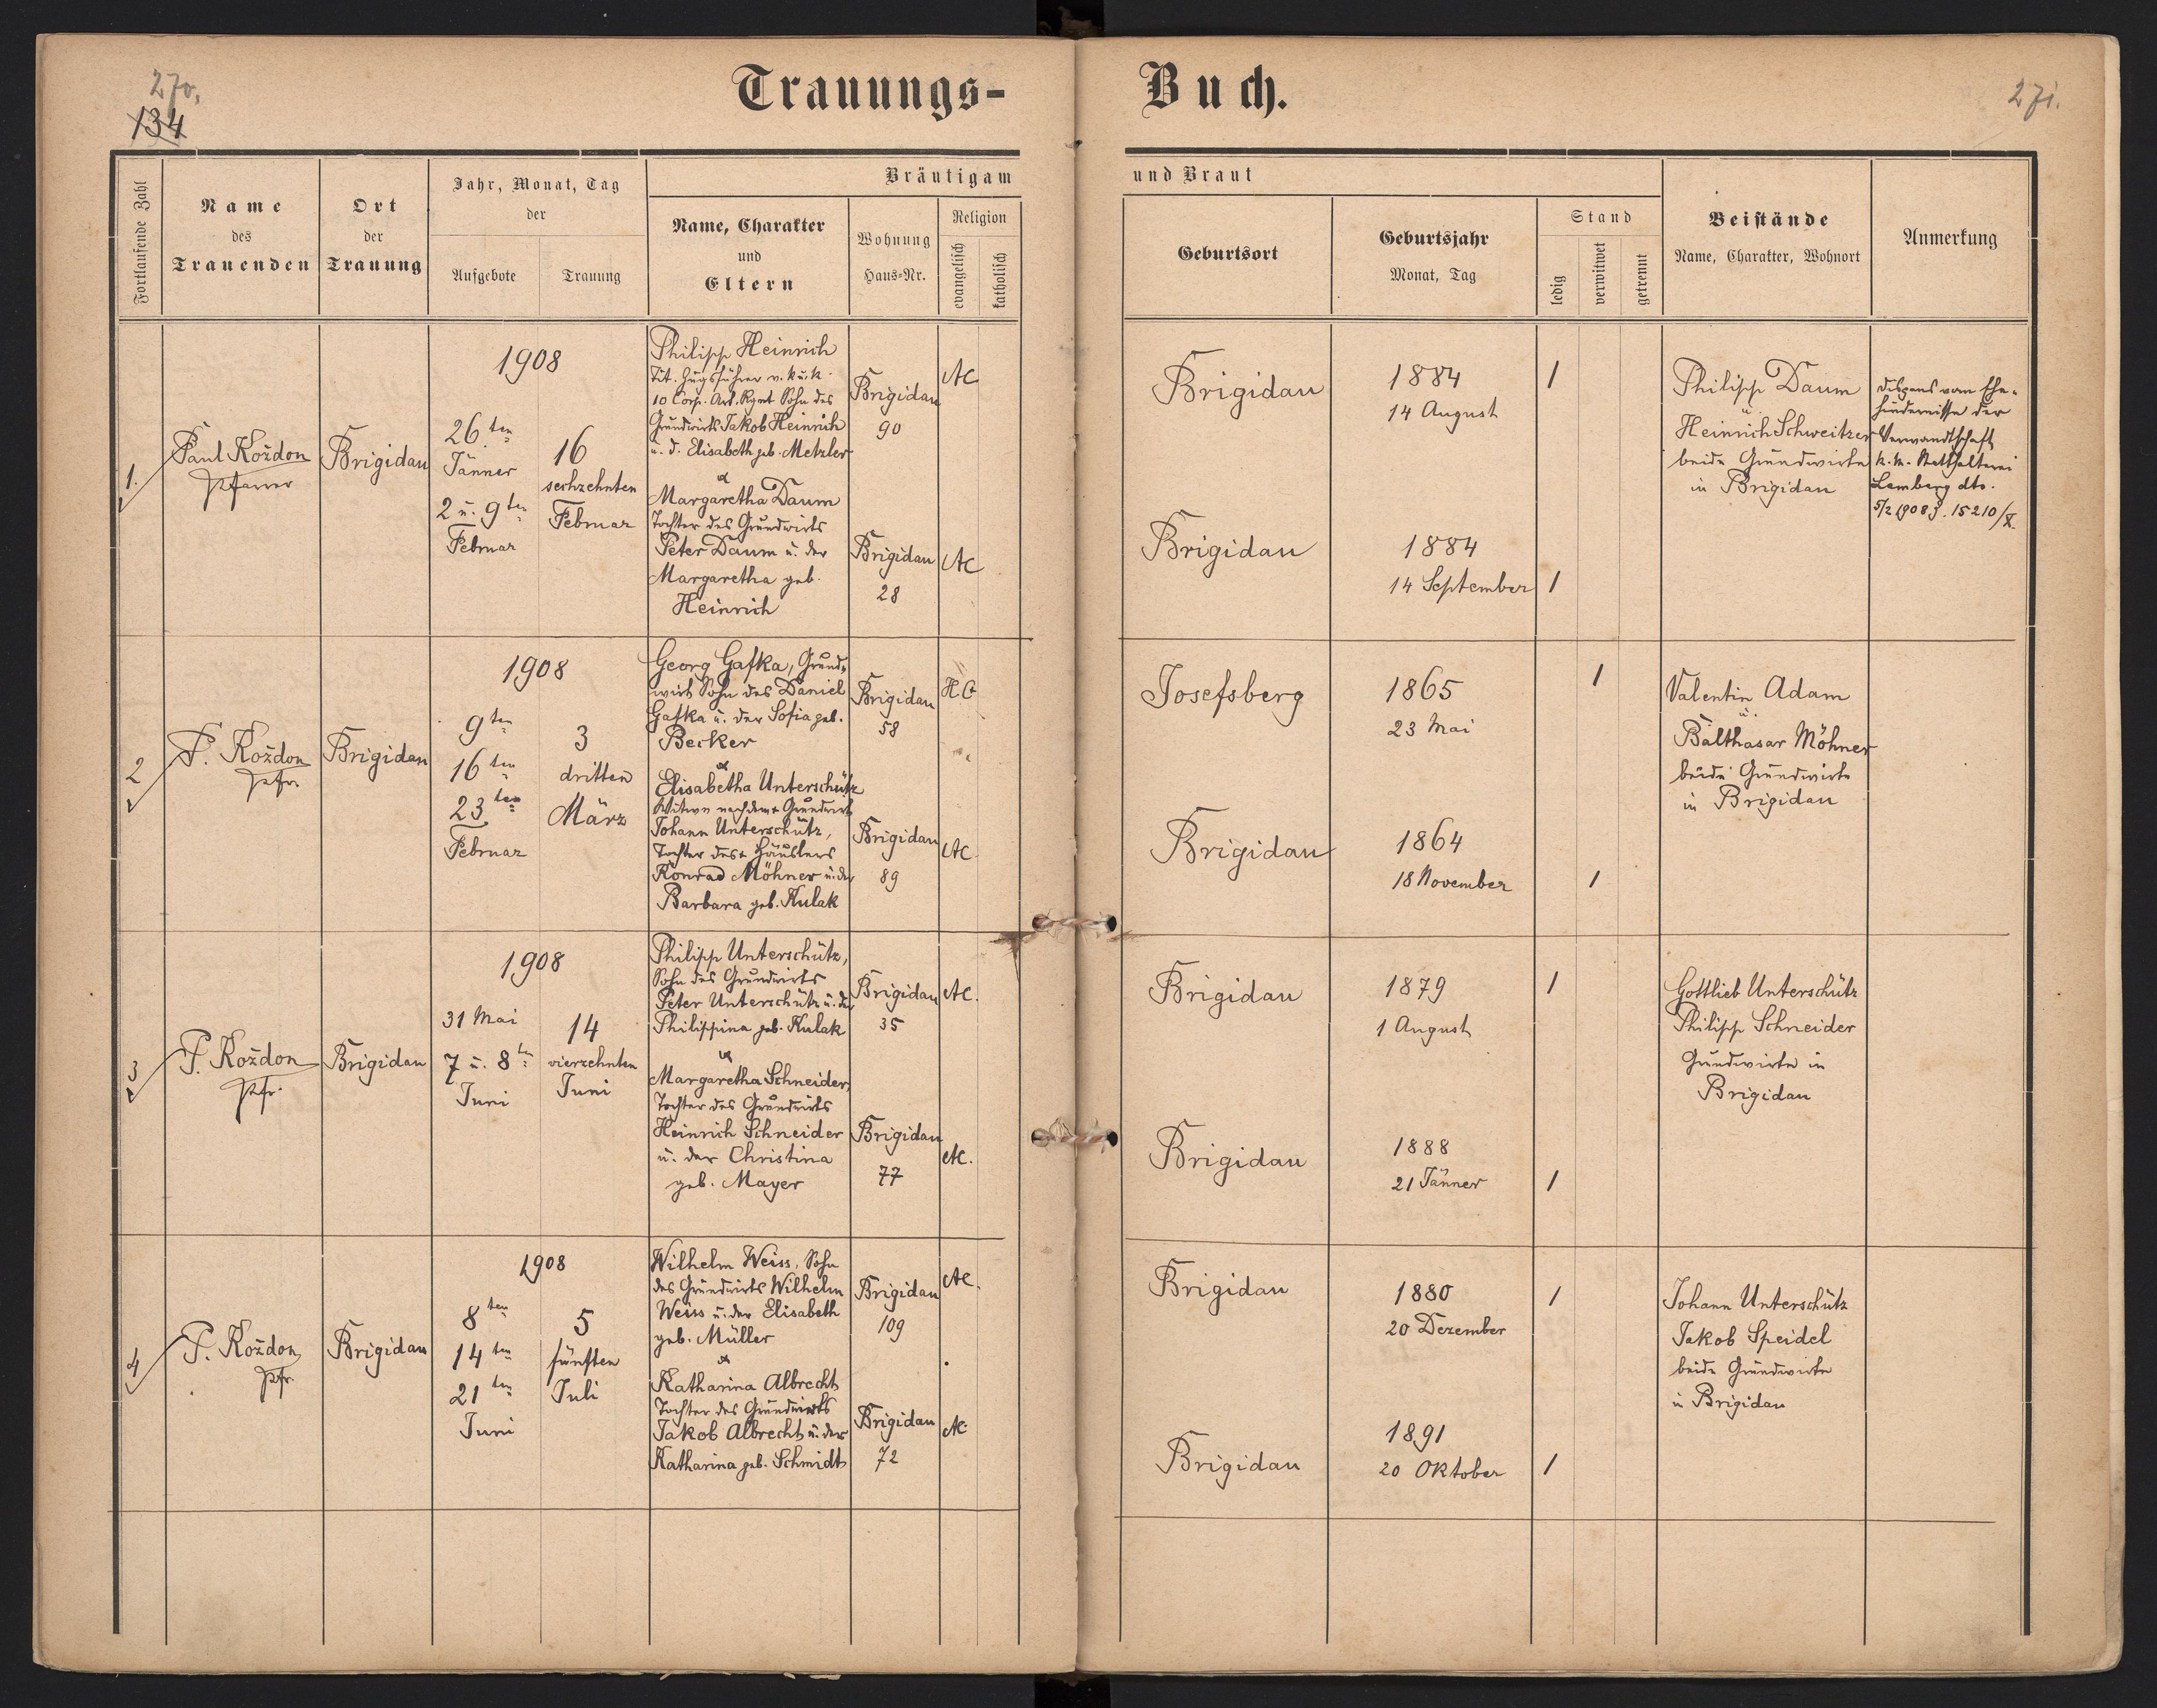 270,
134
Trauungs-
Buch.
271.
Fortlaufende Zahl
Name
des
Trauenden
Ort
der
Trauung
Jahr, Monat, Tag
der
Aufgebote
Trauung
Bräutigam
Name, Charakter
und
Eltern
Wohnung
Haus-Nr.
Religion
evangelisch
katholisch
und Braut
Geburtsort
Geburtsjahr
Monat, Tag
Stand
ledig
verwitwet
getrennt
Beistände
Name, Charakter, Wohnort
Anmerkung
1.
Paul Koždon
Pfarrer
Brigidau
1908
26ten
Jänner
2 u. 9ten
Februar
16
sechzehnten
Februar
Philipp Heinrich
Tit. Zugsführer v. k.u.k.
10 Corp. Art. Rgmt Sohn des
Grundwirts Jakob Heinrich
u. d. Elisabeth geb. Metzler
Brigidau
90
AC
&
Margaretha Daum
Tochter des Grundwirts
Peter Daum u. der
Margaretha geb.
Heinrich
Brigidau
28
AC
Brigidau
1884
14 August
1
Brigidau
1884
14 September
1
Philipp Daum
u.
Heinrich Schweitzer
beide Grundwirte
in Brigidau
Dispens vom Ehe-
hindernisse der
Verwandtschaft
k.k. Statthalterei
Lemberg dto.
5/2 1908 J. 15210/X.
2
P. Koždon
Pfr.
Brigidau
1908
9ten
16ten
23ten
Februar
3
dritten
März
Georg Gafka, Grund-
wirt Sohn des Daniel
Gafka u. der Sofia geb.
Becker
Brigidau
58
HC
&
Elisabetha Unterschütz
Witwe nach dem + Grundwirt
Johann Unterschütz,
Tochter des + Häuslers
Konrad Möhner u. der
Barbara geb. Kulak
Brigidau
89
AC.
Josefsberg
1865
23 Mai
1
Brigidau
1864
18 November
1
Valentin Adam
u.
Balthasar Möhner
beide Grundwirte
in Brigidau
3
P. Koždon
Pfr.
Brigidau
1908
31 Mai
7 u. 8ten
Juni
14
vierzehnten
Juni
Philipp Unterschütz,
Sohn des Grundwirts
Peter Unterschütz u. der
Philippina geb. Kulak
Brigidau
35
AC.
&
Margaretha Schneider,
Tochter des Grundwirts
Heinrich Schneider
u. der Christina
geb. Mayer
Brigidau
77
AC.
Brigidau
1879
1 August
1
Brigidau
1888
21 Jänner
1
Gottlieb Unterschütz
Philipp Schneider
Grundwirte in
Brigidau
4
P. Koždon
Pfr.
Brigidau
1908
8ten
14ten
21ten
Juni
5
fünften
Juli
Wilhelm Weiss, Sohn
des Grundwirts Wilhelm
Weiss u. der Elisabeth
geb. Müller
Brigidau
109
AC.
&
Katharina Albrecht
Tochter des Grundwirts
Jakob Albrecht u. der
Katharina geb. Schmidt
Brigidau
72
AC
Brigidau
1880
20 Dezember
1
Brigidau
1891
20 Oktober
1
Johann Unterschütz
Jakob Speidel
beide Grundwirte
in Brigidau